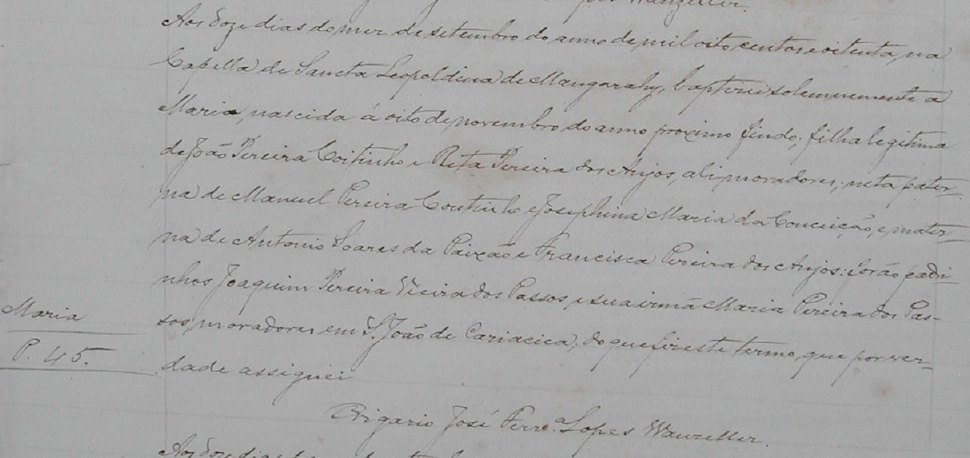 Lopes Wanzeller.
Aos doze dias do mez de setembro do anno de mil oito centos e oitenta, na
Capella de Sancta Leopoldina de Mangarahy, baptizei solemnemente a
Maria, nascida á oito de novembro do anno proximo findo; filha legitima
de João Pereira Coitinho e Rita Pereira dos Anjos, ali moradores; neta pater-
na de Manuel Pereira Coutinho e Josephina Maria da Conceição, e mater-
na de Antonio Soares da Paixão e Francisca Pereira dos Anjos: forão padri-
nhos Joaquim Pereira Vieira dos Passos, e sua irmã Maria Pereira dos Pas-
sos, moradores em S. João de Cariacica; do que fiz este termo, que por ver-
dade assignei
Maria
P. 45.
O Vigario José Ferr.ª Lopes Wanzeller.
Aos doze dias